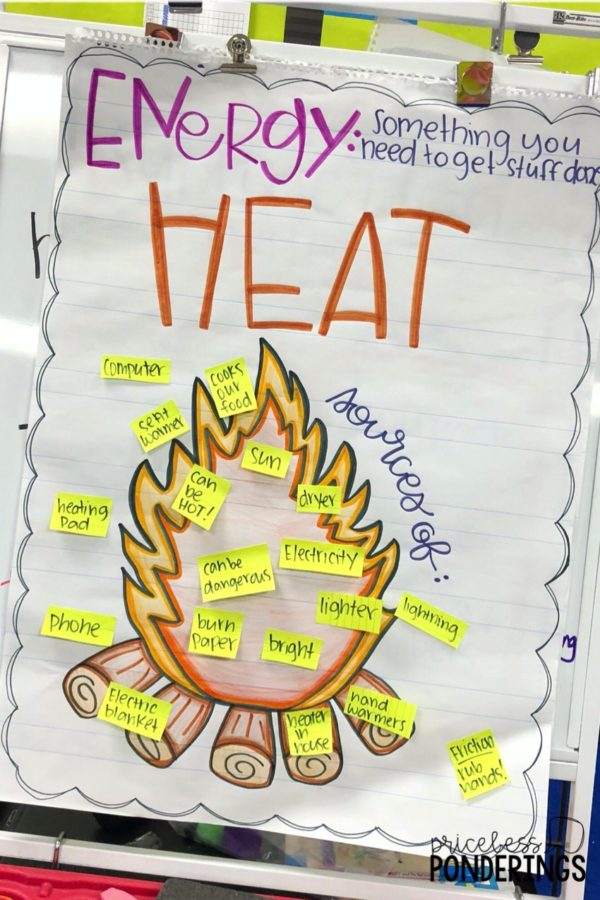 ENeRgy:
something you
need to get stuff done
HEAT
sources of:
computer
cooks
our
food
seat
warmer
sun
can
be
HOT!
dryer
heating
pad
Electricity
can be
dangerous
lighter
lightning
phone
burn
paper
bright
Electric
blanket
heater
in
house
hand
warmers
Friction
rub
hands!
priceless
PONDERINGS